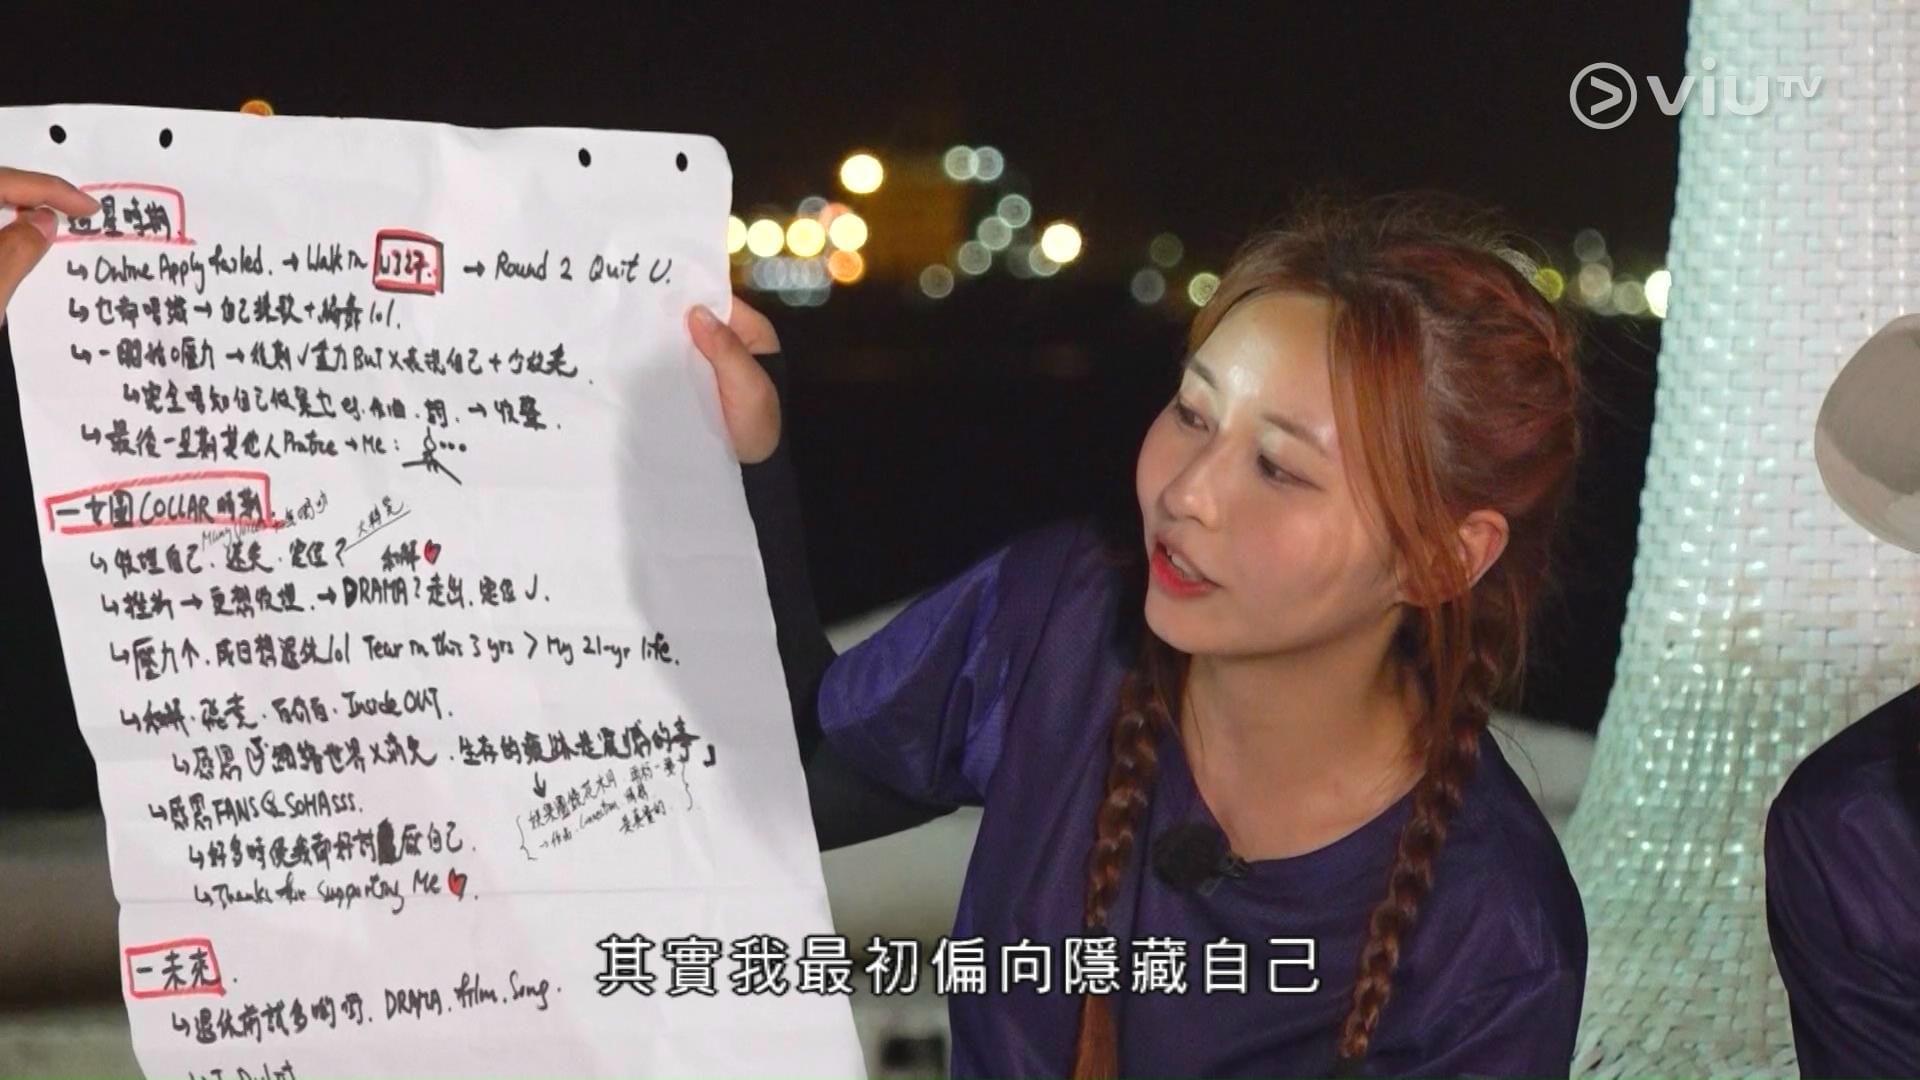 viu TV
造星時期.
↳ Online Apply failed. → Walk in U327. → Round 2 Quit U.
↳ 乜都唔識 → 自己揀歌 + 編舞 lol.
↳ 一開始0壓力 → 後期√壓力 But X表現自己 + 少收
↳ 完全唔知自己做緊乜 eg. 作曲. 詞. →
↳ 最後一星期其他人 Practice → Me: ...
一女團COLLAR時期.
↳ 收埋自己. 迷失. 定位? 和解❤
↳ 挫折 → 更想收埋. → DRAMA? 走出. 定位√.
↳ 壓力个. 成日想退休 lol Tear in this 3 yrs > My 21-yr life.
↳ 和解. 百分百. Inside OUT.
↳ 感恩 網絡世界X消失. 生存的痕跡是震撼的事」
↳ 感恩 FANS & SOHASSS.
↳ 好多時候我都好討厭自己.
↳ Thanks for supporting Me ❤.
一未來.
↳ 退休前試多啲嘢. DRAMA. Film. Song.
其實我最初偏向隱藏自己